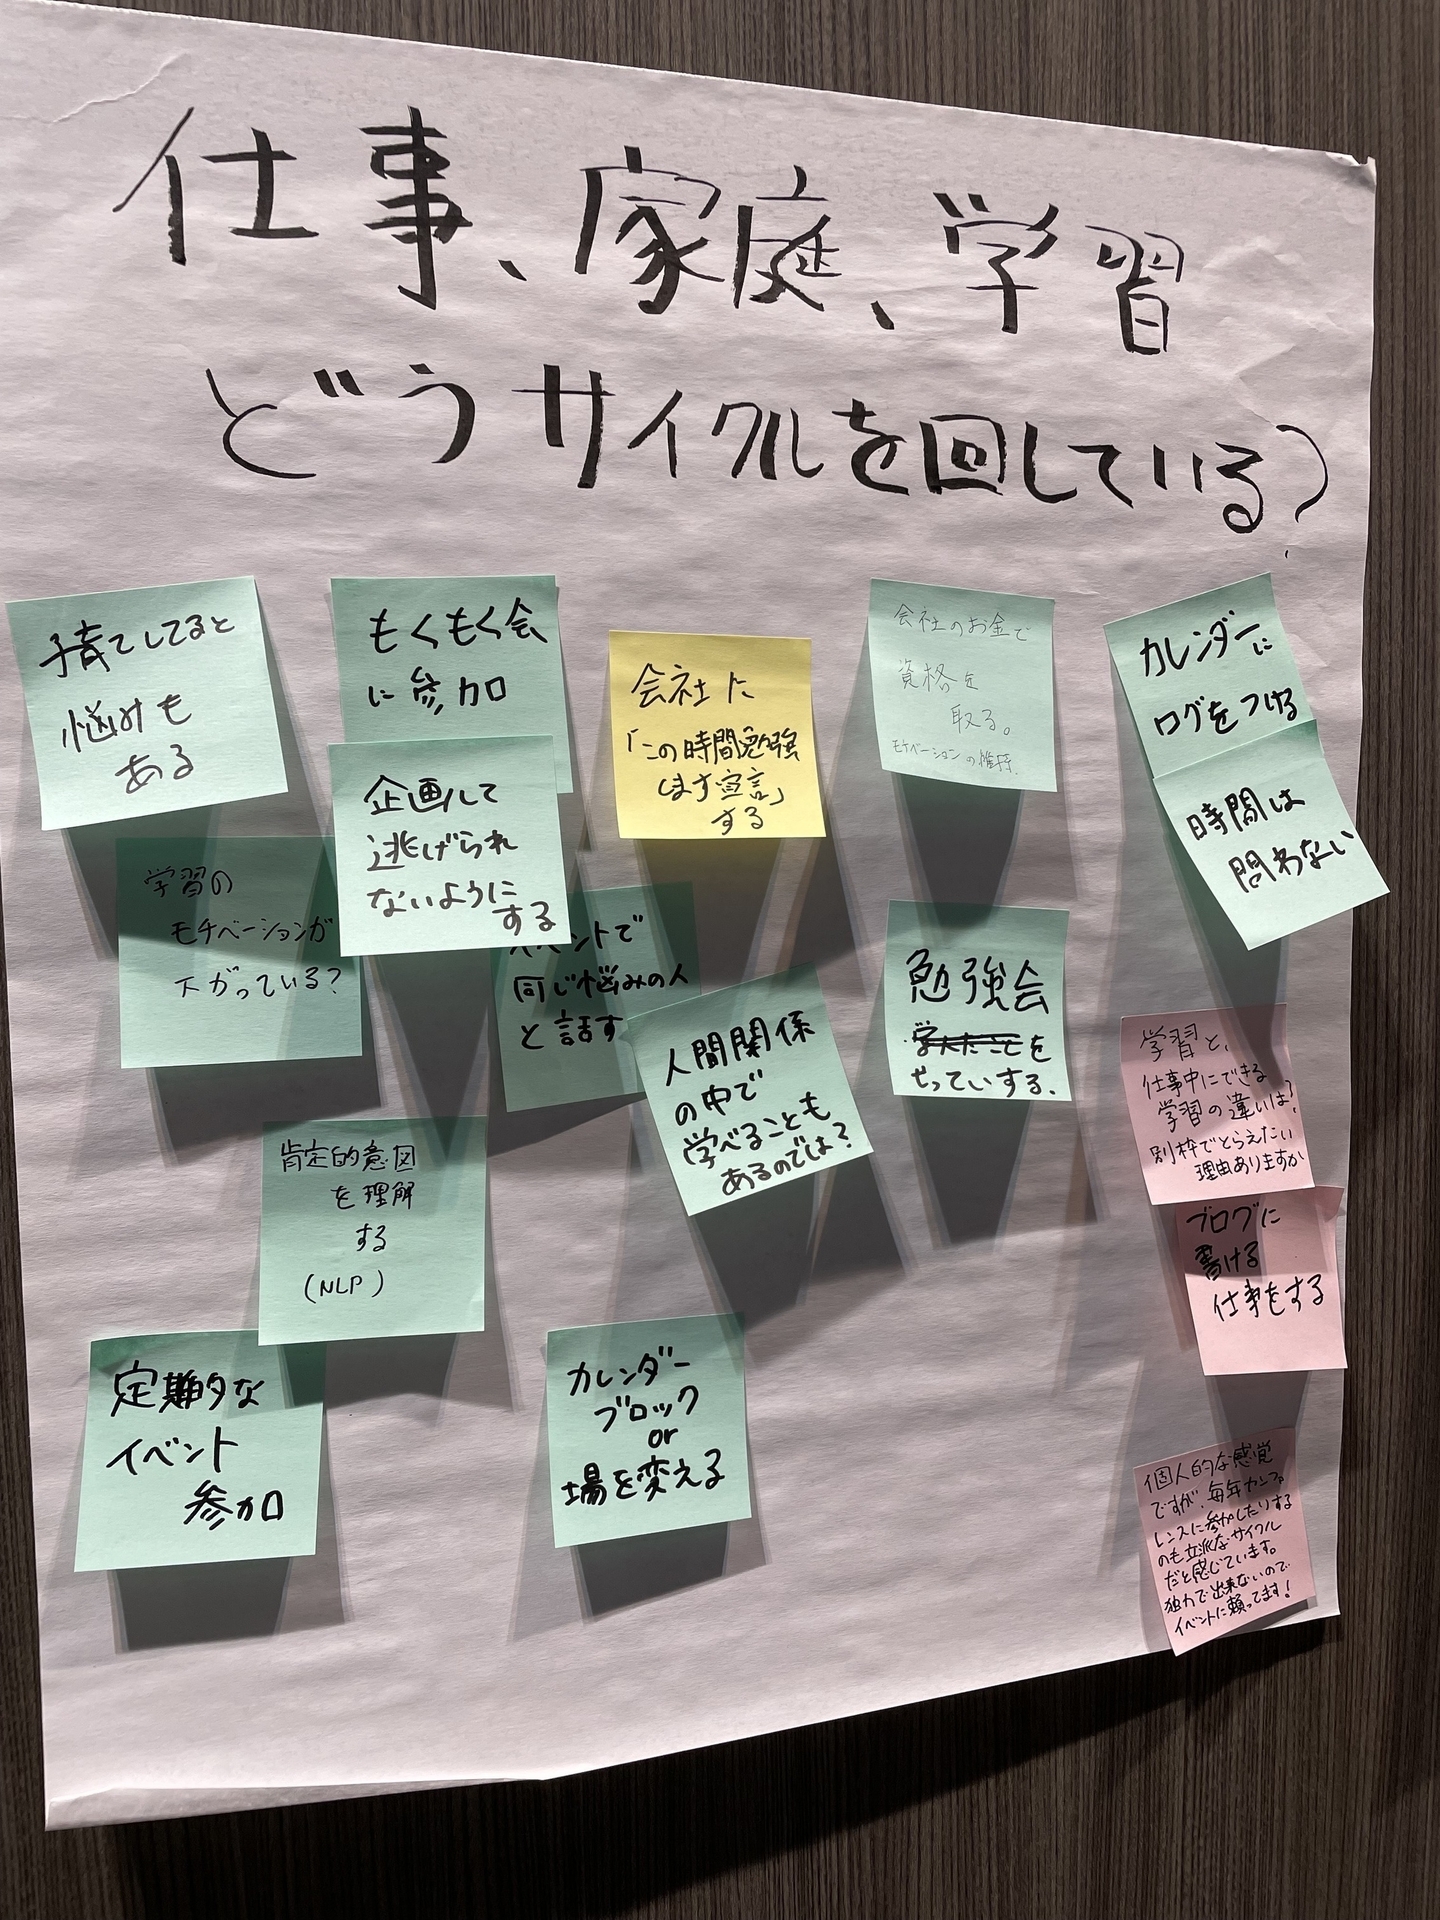 仕事、家庭、学習
どうサイクルを回している?
子育てしてると
悩みも
ある
もくもく会
に参加
企画して
逃げられ
ないように
する
会社に
「この時間勉強
します宣言」
する
会社のお金で
資格を
取る。
モチベーションの維持。
カレンダーに
ログをつける
時間は
問わない
学習の
モチベーションが
下がっている?
イベントで
同じ悩みの人
と話す
人間関係
の中で
学べることも
あるのでは?
勉強会
学んだことを
せっていする.
学習と、
仕事中にできる
学習の違いは?
別枠でとらえたい
理由ありますか
ブログに
書ける
仕事をする
肯定的意図
を理解
する
(NLP)
定期的な
イベント
参加
カレンダー
ブロック
or
場を変える
個人的な感覚
ですが、毎年カンファ
レンスに参加したりする
のも立派なサイクル
だと感じています。
独力で出来ないので
イベントに頼ってます!